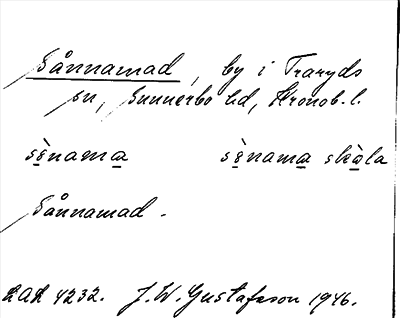 Sånnamad, by i Traryds
sn, Sunnerbo hd, Kronob. l.
sènama sènama skòla
Sånnamad.
LAL 4232. J. W. Gustafsson 1946.